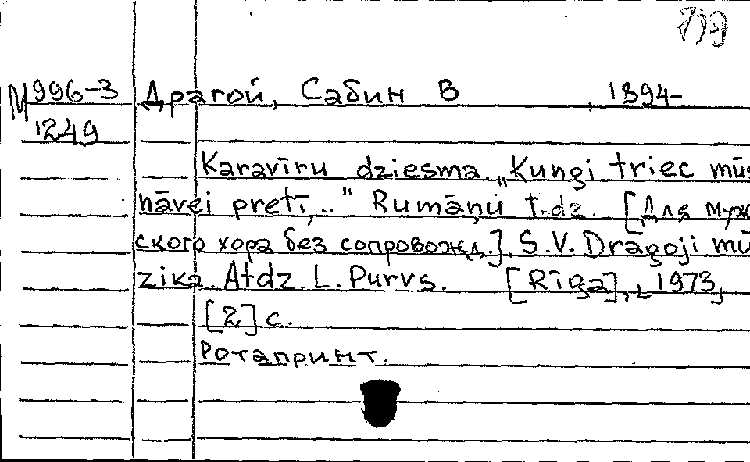 М 996-3 Драгой, Сабин В , 1894-
1249
Karavīru dziesma „Kungi triec mūs
nāvei pretī,.." Rumāņu t.dz. [Для муж
ского хора без сопровожд.]. S.V. Dragoji mū
zika Atdz L. Purvs. [Rīga], 1973,
[2] с.
Ротапринт.